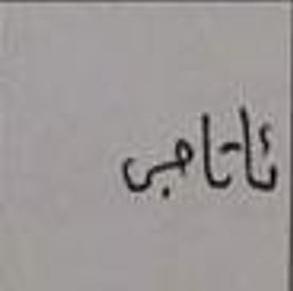 ئاتاجى